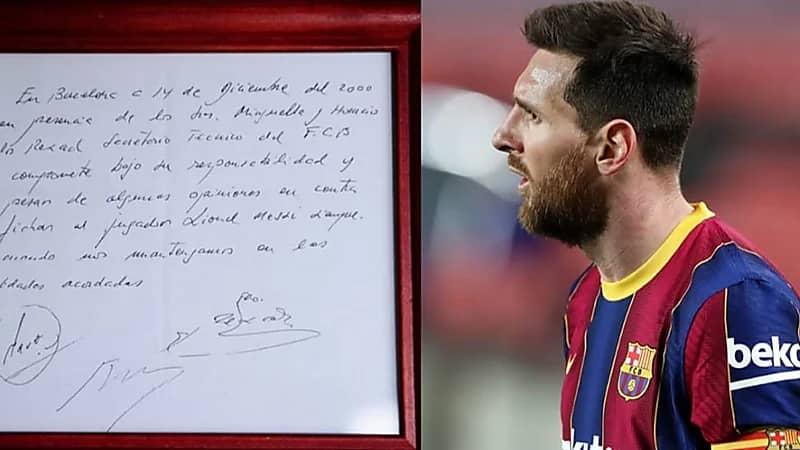 En Barcelona a 14 de Diciembre del 2000
en presencia de los Srs. Minguella y Horacio
Rexach Secretario Tecnico del F.C.B
compromete bajo su responsabilidad y
pesar de algunas opiniones en contra
fichar al jugador Lionel Messi siempre
cuando nos mantengamos en las
acordadas
FCB
beko